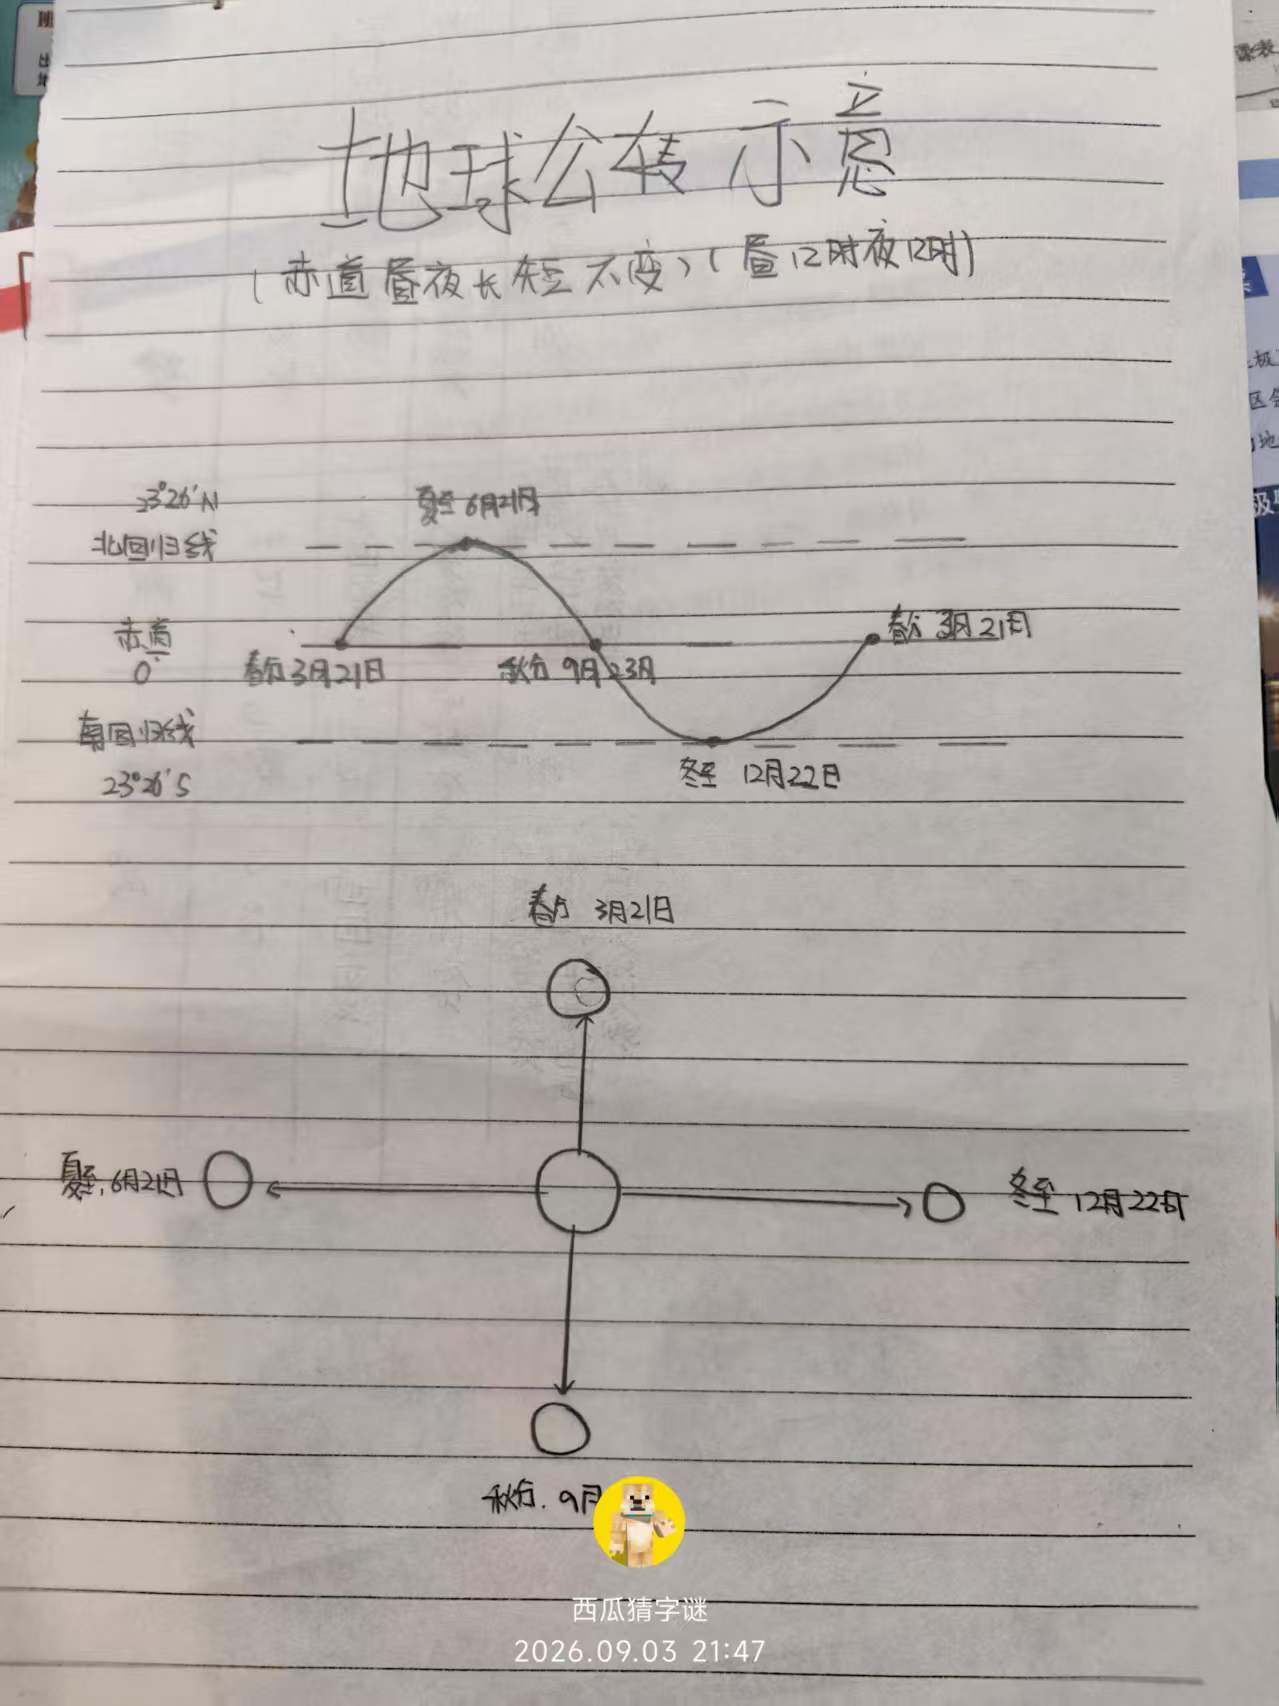 地球公转示意
(赤道昼夜长短不变)(昼12时夜12时)
23°26′N
夏至 6月21日
北回归线
赤道
0°
春分 3月21日
秋分 9月23日
春分 3月21日
南回归线
23°26′S
冬至 12月22日
春分 3月21日
夏至.6月21日
冬至 12月22日
秋分.9月
西瓜猜字谜
2026.09.03 21:47